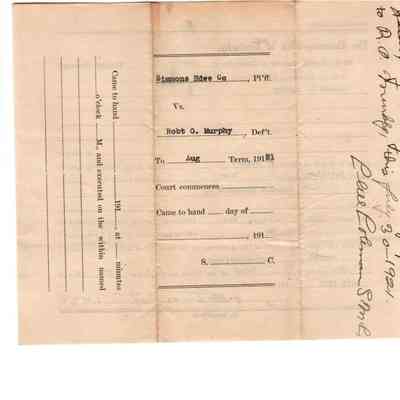 Came to hand
191 at minutes
o'clock M., and executed on the within named
Simmons Hdwe Co , Pl'ff.
Vs.
Robt O. Murphy , Def't.
To Aug Term, 1921
Court commences
Came to hand day of
, 191
S. C.
to R. O. this July 30 1921.